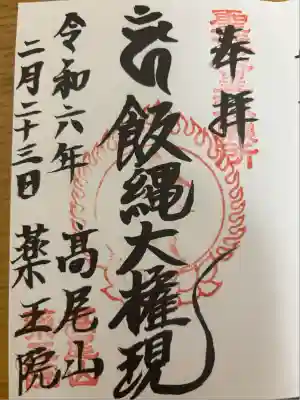 奉拝
飯縄大権現
令和六年
二月二十三日
高尾山
薬王院